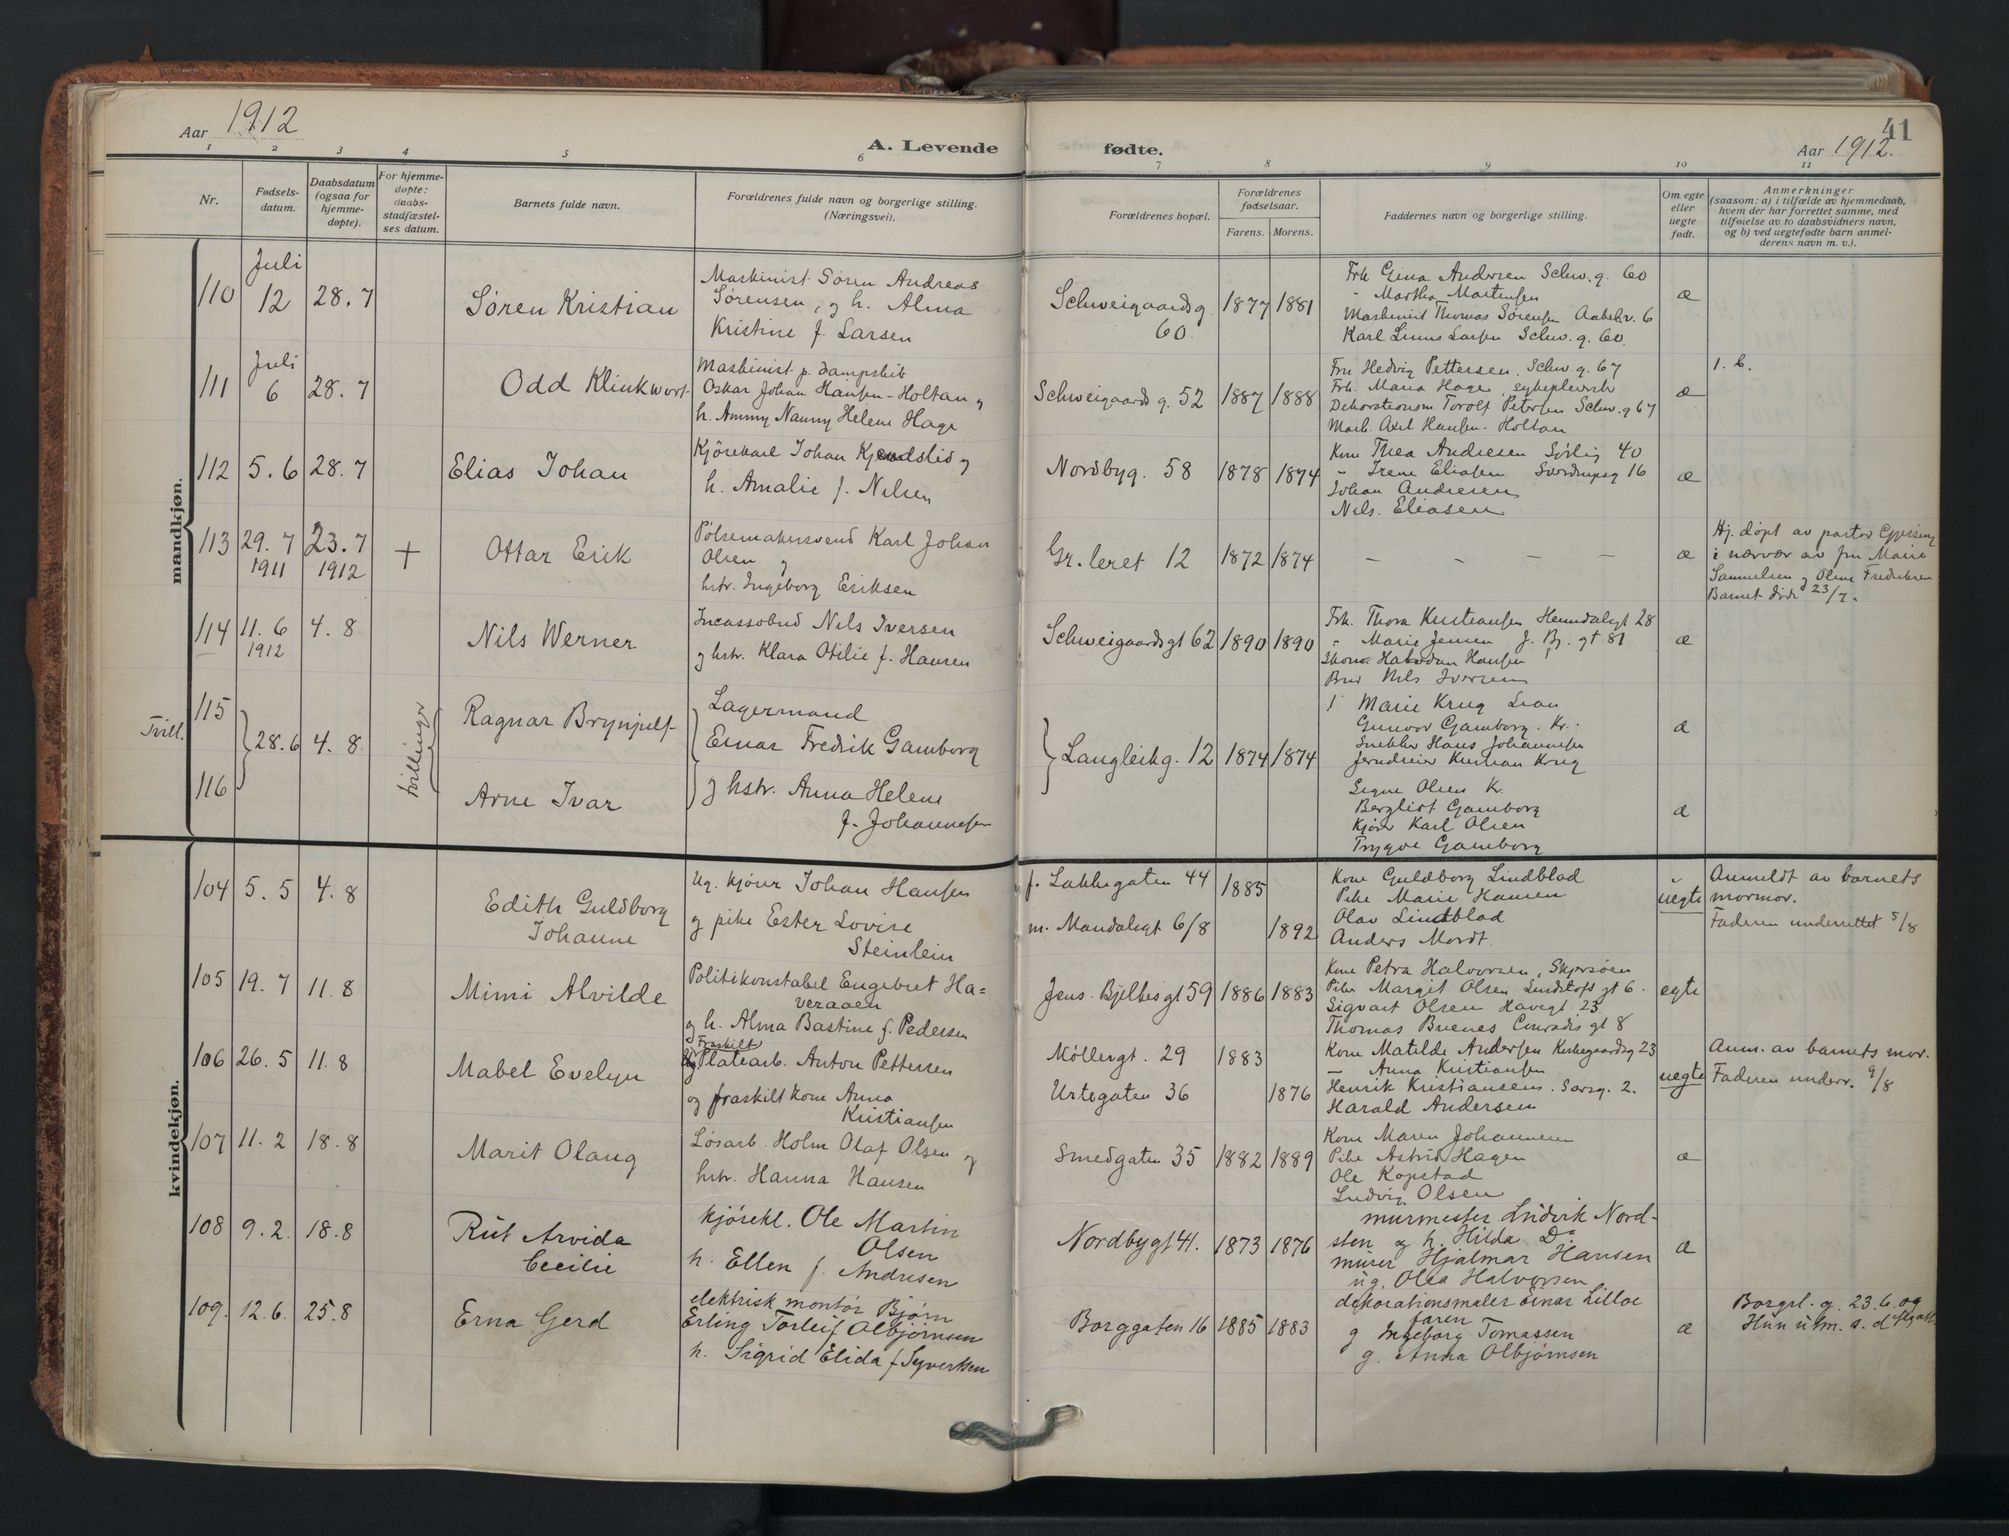 Aar 1912
A. Levende
fødte.
41
Aar 1912.
1 2 3 4 5 6 7 8 9 10 11
Nr.
Fødsels-
datum.
Daabsdatum
(ogsaa for
hjemme-
døpte).
For hjemme-
døpte:
daabs-
stadfæstel-
ses datum.
Barnets fulde navn.
Forældrenes fulde navn og borgerlige stilling.
(Næringsvei).
Forældrenes bopæl.
Forældrenes
fødselsaar.
Farens. Morens.
Faddernes navn og borgerlige stilling.
Om egte
eller
uegte
født.
Anmerkninger
(saasom: a) i tilfælde av hjemmedaab,
hvem der har forrettet samme, med
tilføielse av to daabsvidners navn,
og b) ved uegtefødte barn anmel-
derens navn m. v.).
mandkjøn.
110
Juli
12
28.7
Søren Kristian
Maskinist Søren Andreas
Sørensen, og h. Alma
Kristine f. Larsen
Schweigaardsg.
60.
1877 1881
Frk Gina Andersen Schw.g. 60
" Martha Martensen
Maskinist Thomas Sørensen Aakebv. 6
Karl Linus Larsen Schw.g. 60.
æ
111
Juli
6
28.7
Odd Klinkwort
Maskinist p. dampskib
Oskar Johan Hansen-Holtan og
h. Ammy Nanny Helene Hage
Schweigaards g. 52
1887 1888
Fru Hedvig Pettersen. Schw.g. 67
Frk. Maria Hage, sykepleiersk
Dekorationsm Torolf Petersen Schw.g 67
Mask. Axel Hansen-Holtan
æ
1. b.
112 5.6 28.7
Elias Johan
Kjørekarl Johan Kjendslid og
h. Amalie f. Nilsen
Nordbyg. 58
1878 1874
Kone Thea Andresen Sørlig 40
" Irene Eliasen Sverdrupsg 16
Johan Andresen
Nils. Eliasen
æ
113
29.7
1911
23.7
1912
+
Ottar Erik
Pølsemakersvend Karl Johan
Olsen og
hstr. Ingeborg Eriksen
Gr. leret 12
1872 1874
– – – –
æ
Hj. døpt av pastor
i nærvær av fru Maria
Samuelsen og Oline Fredriksen
Barnet døde 23/7.
114
11.6
1912
4.8
Nils Werner
Incassobud Nils Iversen
og hstr. Klara Otilie f. Hansen
Schweigaardsgt 62
1890 1890
Frk. Thora Kristiansen Hemdalsgt 28
" Marie Jensen J. B. gt 81
Skom. Halvdan Hansen
Bud Nils Iversen
æ
Tvill.
115
116
28.6 4.8
tvillinger
Ragnar Brynjulf
Arne Ivar
Lagermand
Einar Fredrik Gamborg
og hstr. Anna Helene
f. Johannesen
Langleikg. 12
1874 1874
Marie Krug Lian
Gunvor Gamborg. Kr.
Snekker Hans Johannesen
Jerndreier Kristian Krug
æ
Signe Olsen K.
Bergliot Gamborg
Kjører Karl Olsen
Trygve Gamborg
æ
kvindekjøn.
104 5.5 4.8
Edith Guldborg
Johanne
Ug. kjører Johan Hansen
og pike Ester Lovise
Steinlein
f. Lakkegaten 44
m. Mandalsgt 6/8
1885
1892
Kone Guldborg Lindblad
Pike Marie Hansen
Olav Lindblad
Anders Mordt.
uegte
Anmeldt av barnets
mormor.
Faderen underrettet 5/8
105 19.7 11.8
Mimi Alvilde
Politikonstabel Engebret Ha=
veraaen
og h. Alma Bastine f. Pedersen
Jens. Bjelkesgt 59
1886 1883
Kone Petra Halvorsen, Skjersøen
Pike Margit Olsen Lindstofs gt 6.
Sigvart Olsen Havegt. 23
Thomas Buenes Conradis gt 8
egte
106 26.5 11.8
Mabel Evelyn
Fraskilt
Platearb. Anton Pettersen
og fraskilt kone Anna
Kristiansen
Møllergt. 29
Urtegaten 36
1883
1876
Kone Matilde Andersen Kirkegaardsg 23
– Anna Kristiansen
Henrik Kristiansen. Sarsg. 2.
Harald Andersen
uegte
Anm. av barnets mor.
Faderen underr. 9/8
107 11.2 18.8
Marit Olaug
Løsarb. Holm Olaf Olsen og
hstr. Hanna Hansen
Smedgaten 35
1882 1889
Kone Maren Johannesen
Pike Astrid Hagen
Ole Kopstad
Ludvig Olsen
æ
108 9.2. 18.8
Rut Arvida
Cecilie
Kjørekl. Ole Martin
Olsen
h. Ellen f. Andresen
Nordbygt 41.
1873 1876
murmester Ludvik Nord-
sten og h. Hilda Do
murer Hjalmar Hansen
ug. Olea Halvorsen
æ
109. 12.6. 25.8
Erna Gerd
elektrisk montør Bjørn
Erling Torleif Olbjørnsen
h. Sigrid Elida f Syvertsen
Borggaten 16
1885 1883
dekorationsmaler Einar Lilloe
faren
g Ingeborg Tomassen
g. Anna Olbjørnsen
æ
Borgrl. g. 23.6. og